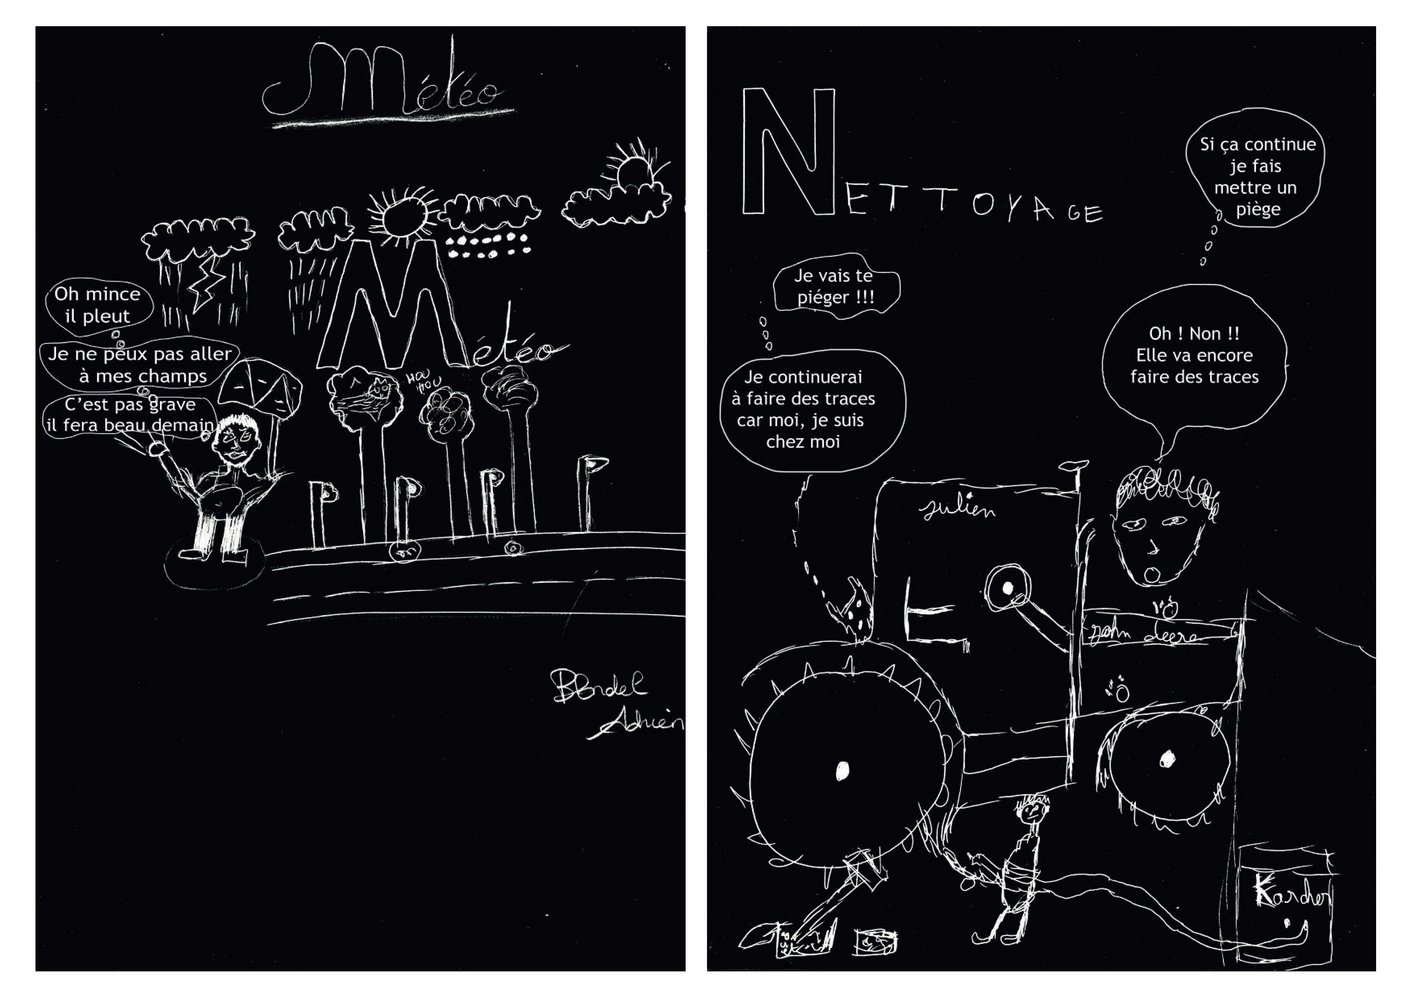 Météo
Météo
Oh mince
il pleut
Je ne peux pas aller
à mes champs
C'est pas grave
il fera beau demain
HOU
HOU
Adrien
NETTOYAGE
Si ça continue
je fais
mettre un
piège
Je vais te
piéger !!!
Oh ! Non !!
Elle va encore
faire des traces
Je continuerai
à faire des traces
car moi, je suis
chez moi
julien
john deere
Karcher